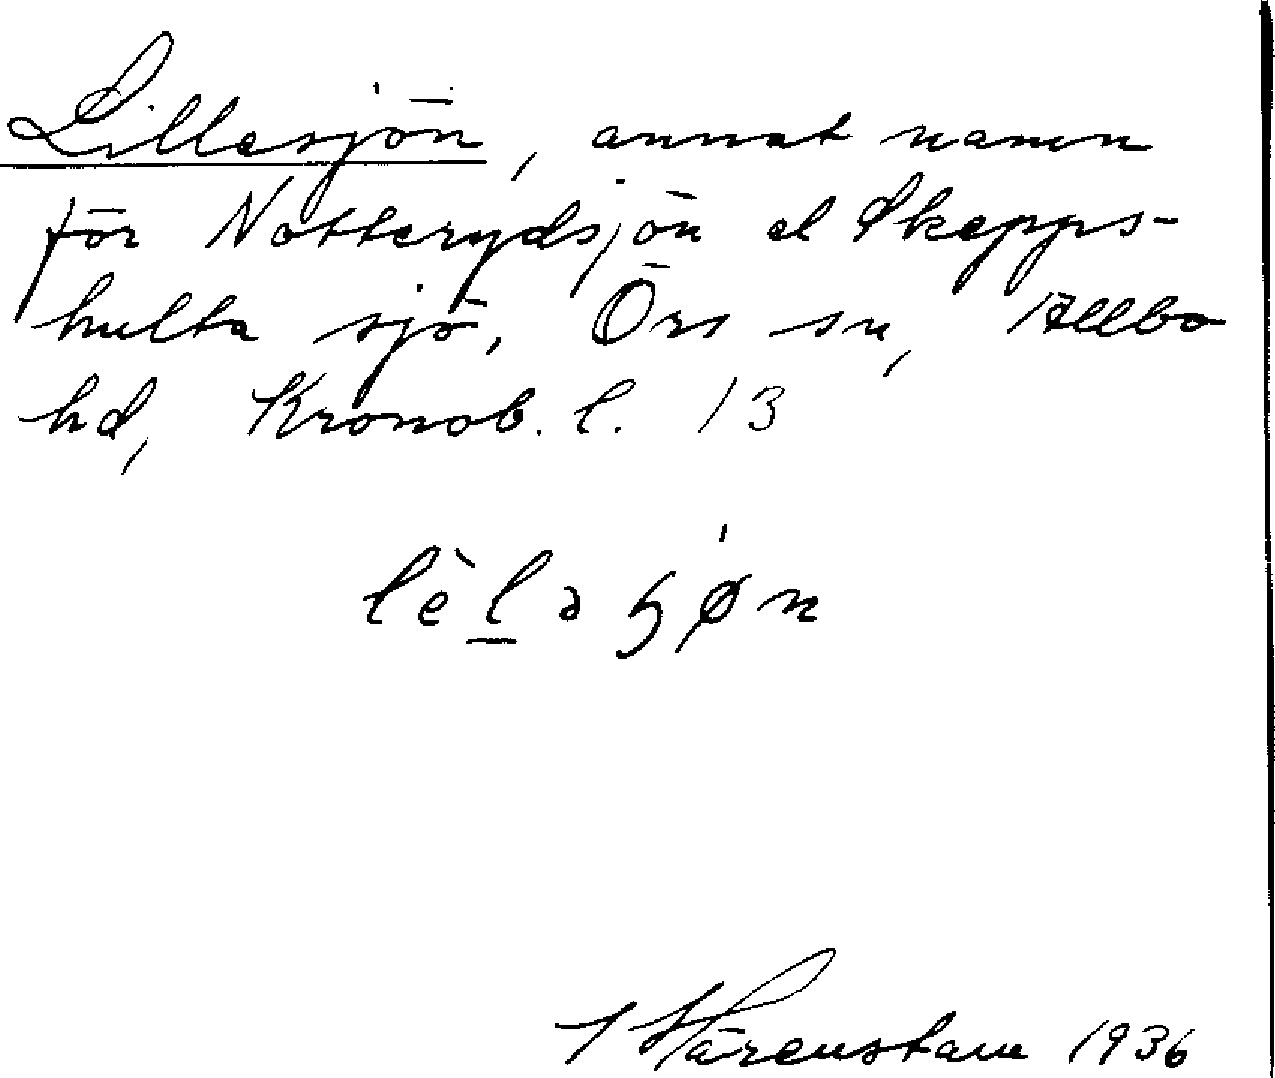 Lillesjön, annat namn
för Notterydsjön el Skepps-
hulta sjö, Örs sn, Allbo
hd, Kronob. l. 13
lèlə ɧøn
Härenstam 1936